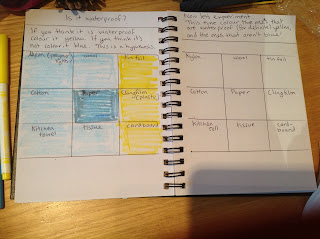 Is it waterproof?
If you think it is waterproof
colour it yellow. If you think it's
not colour it blue. This is a hypothesis
wool
tin foil
Cotton
Paper
Clingfilm
(plastic)
Kitchen
towel
tissue
cardboard
Now lets experiment
This time colour the ones that
are waterproof (do yellow)
and the ones that aren't blue!
wool
tin foil
Cotton
Paper
Clingfilm
Kitchen
tissue
card-
board